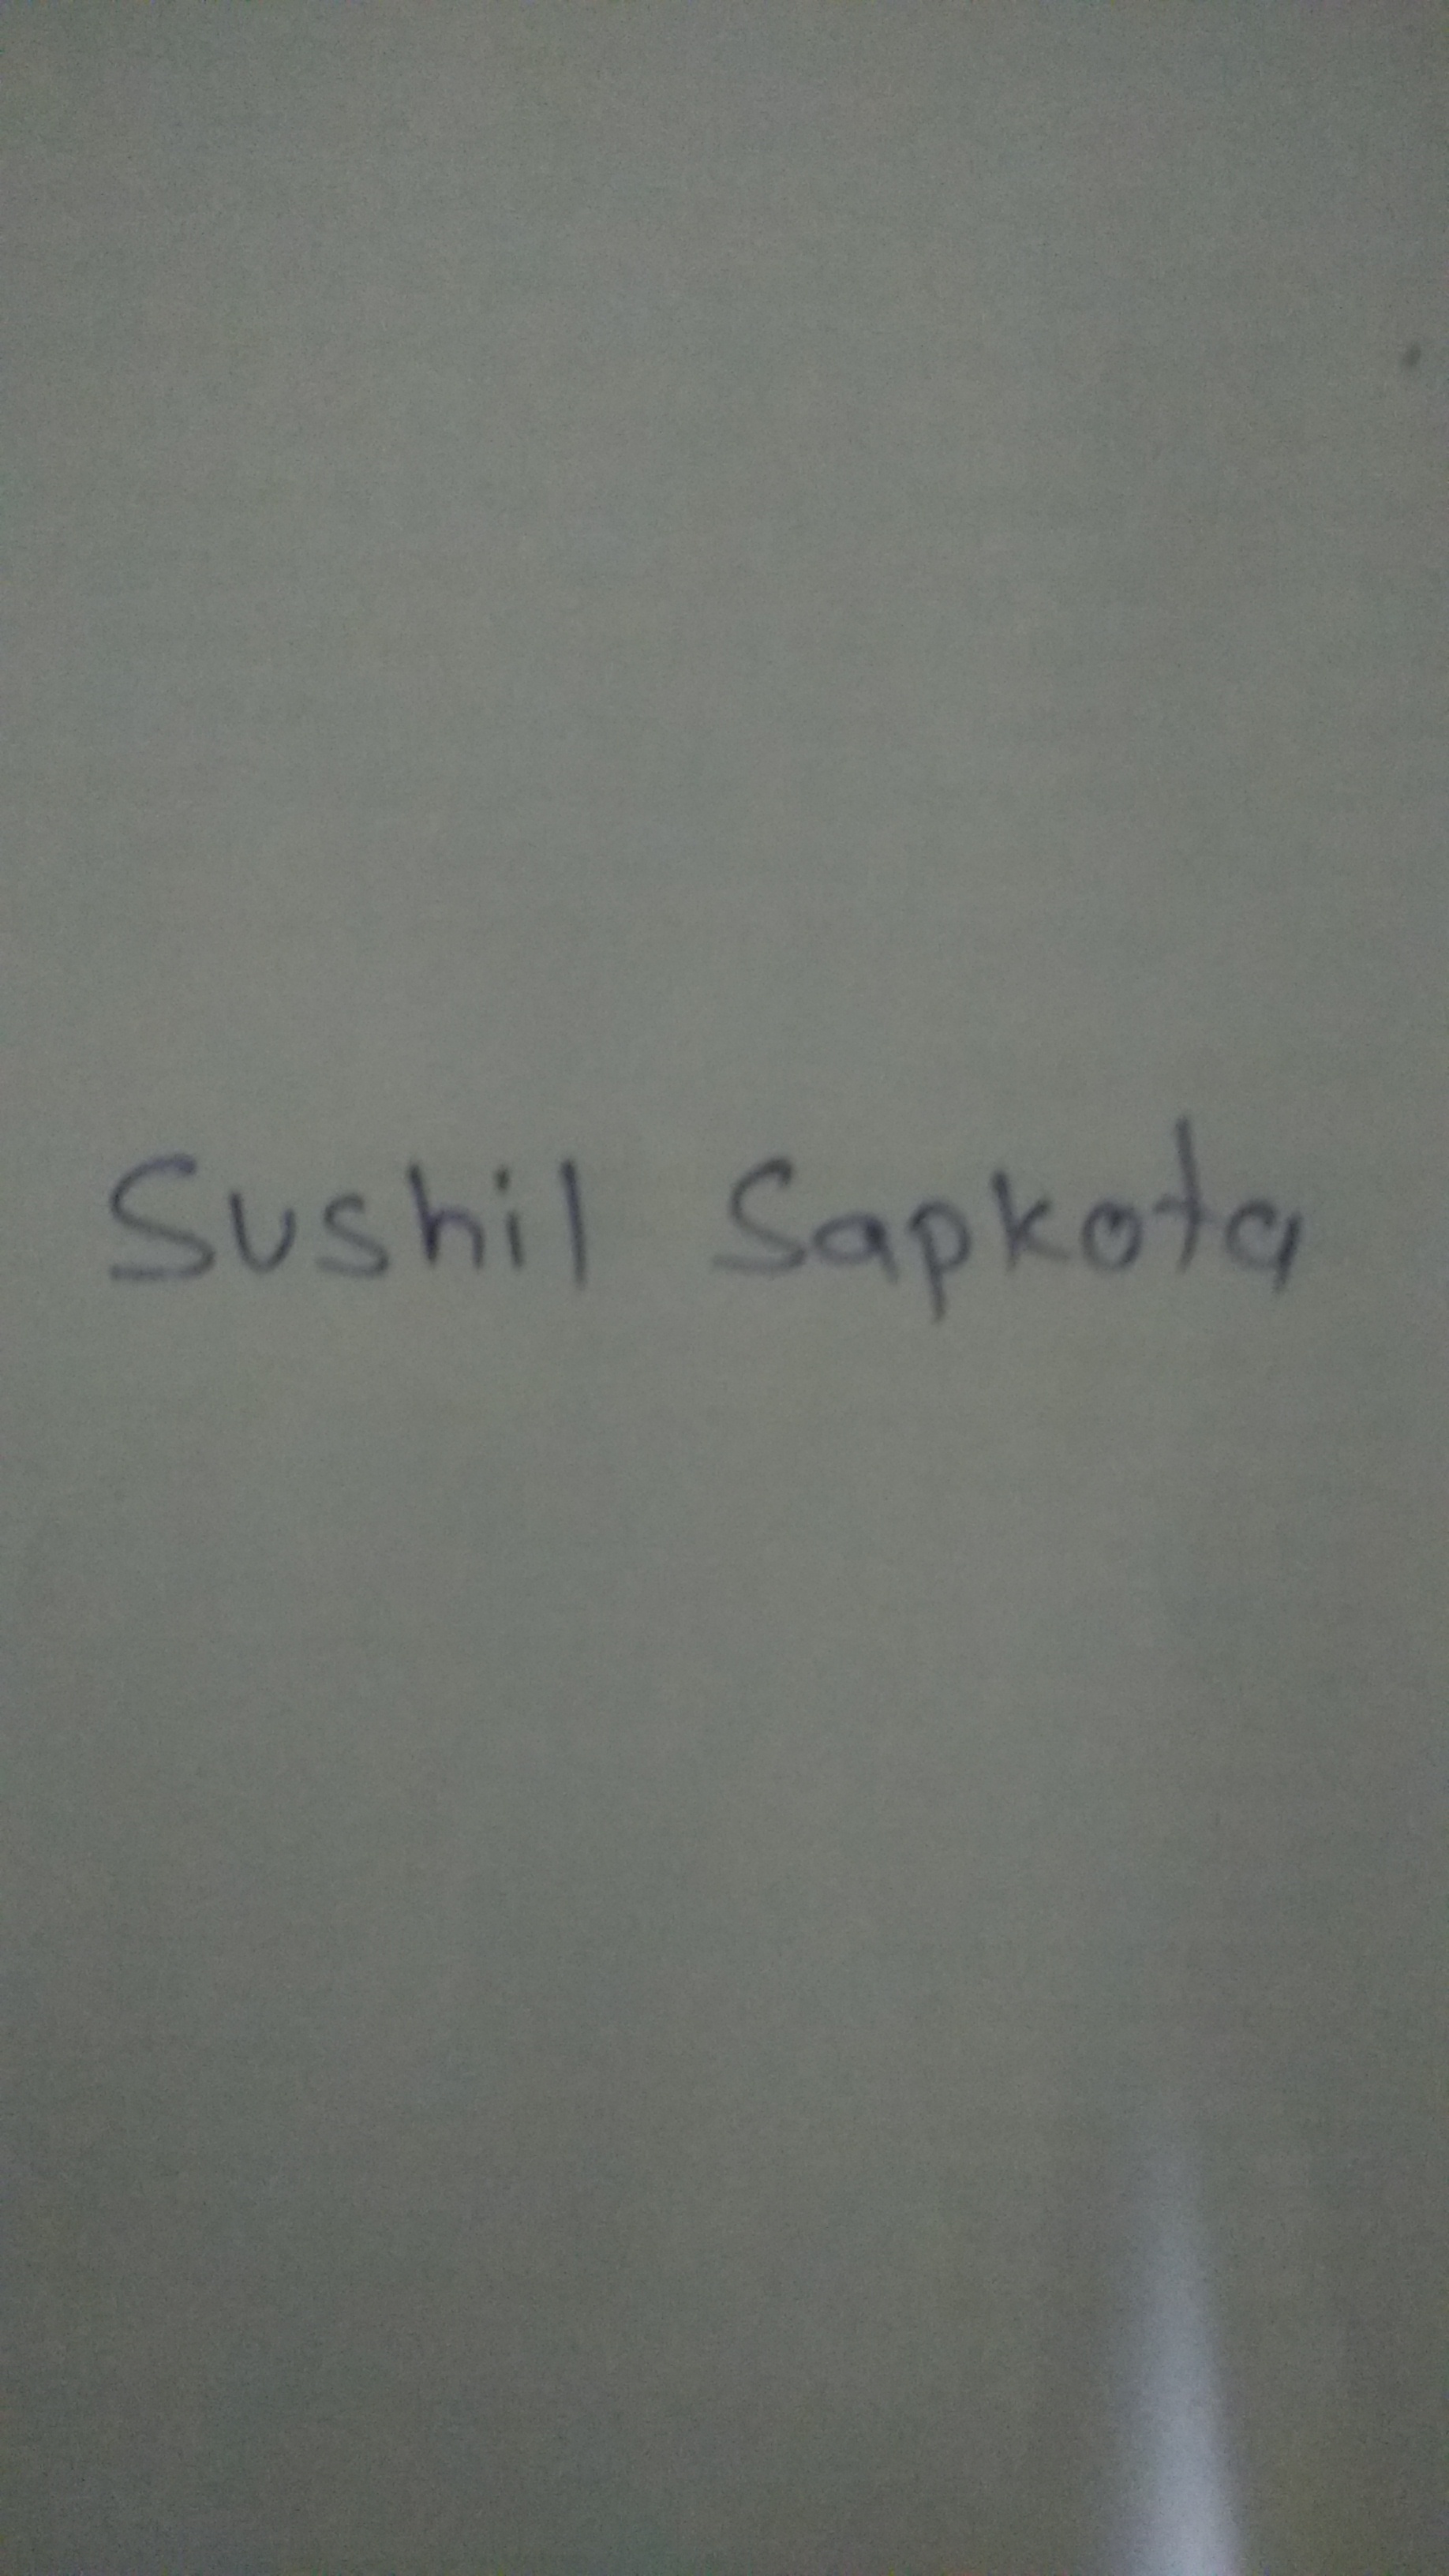 Sushil Sapkota